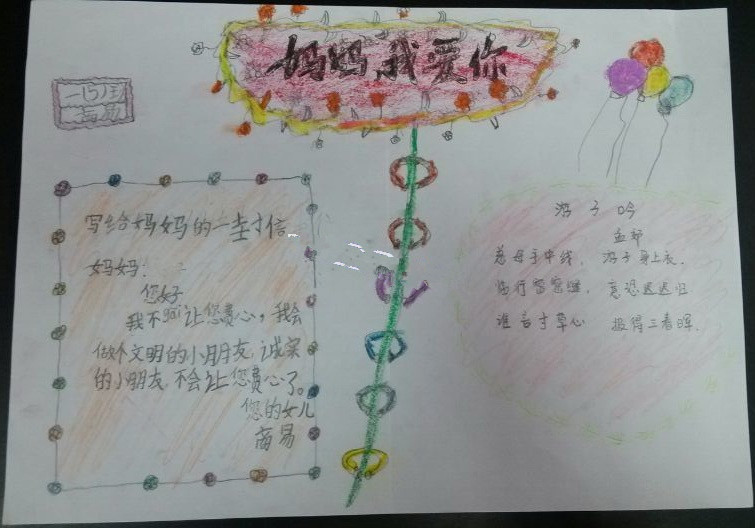 妈妈,我爱你
一(5)班
商易
写给妈妈的一封信
妈妈:
您好
我不 让您费心,我会
做个文明的小朋友,诚实
的小朋友,不会让您费心了。
您的女儿
商易
游子吟
孟郊
慈母手中线, 游子身上衣.
临行密密缝, 意恐迟迟归
谁言寸草心 报得三春晖.